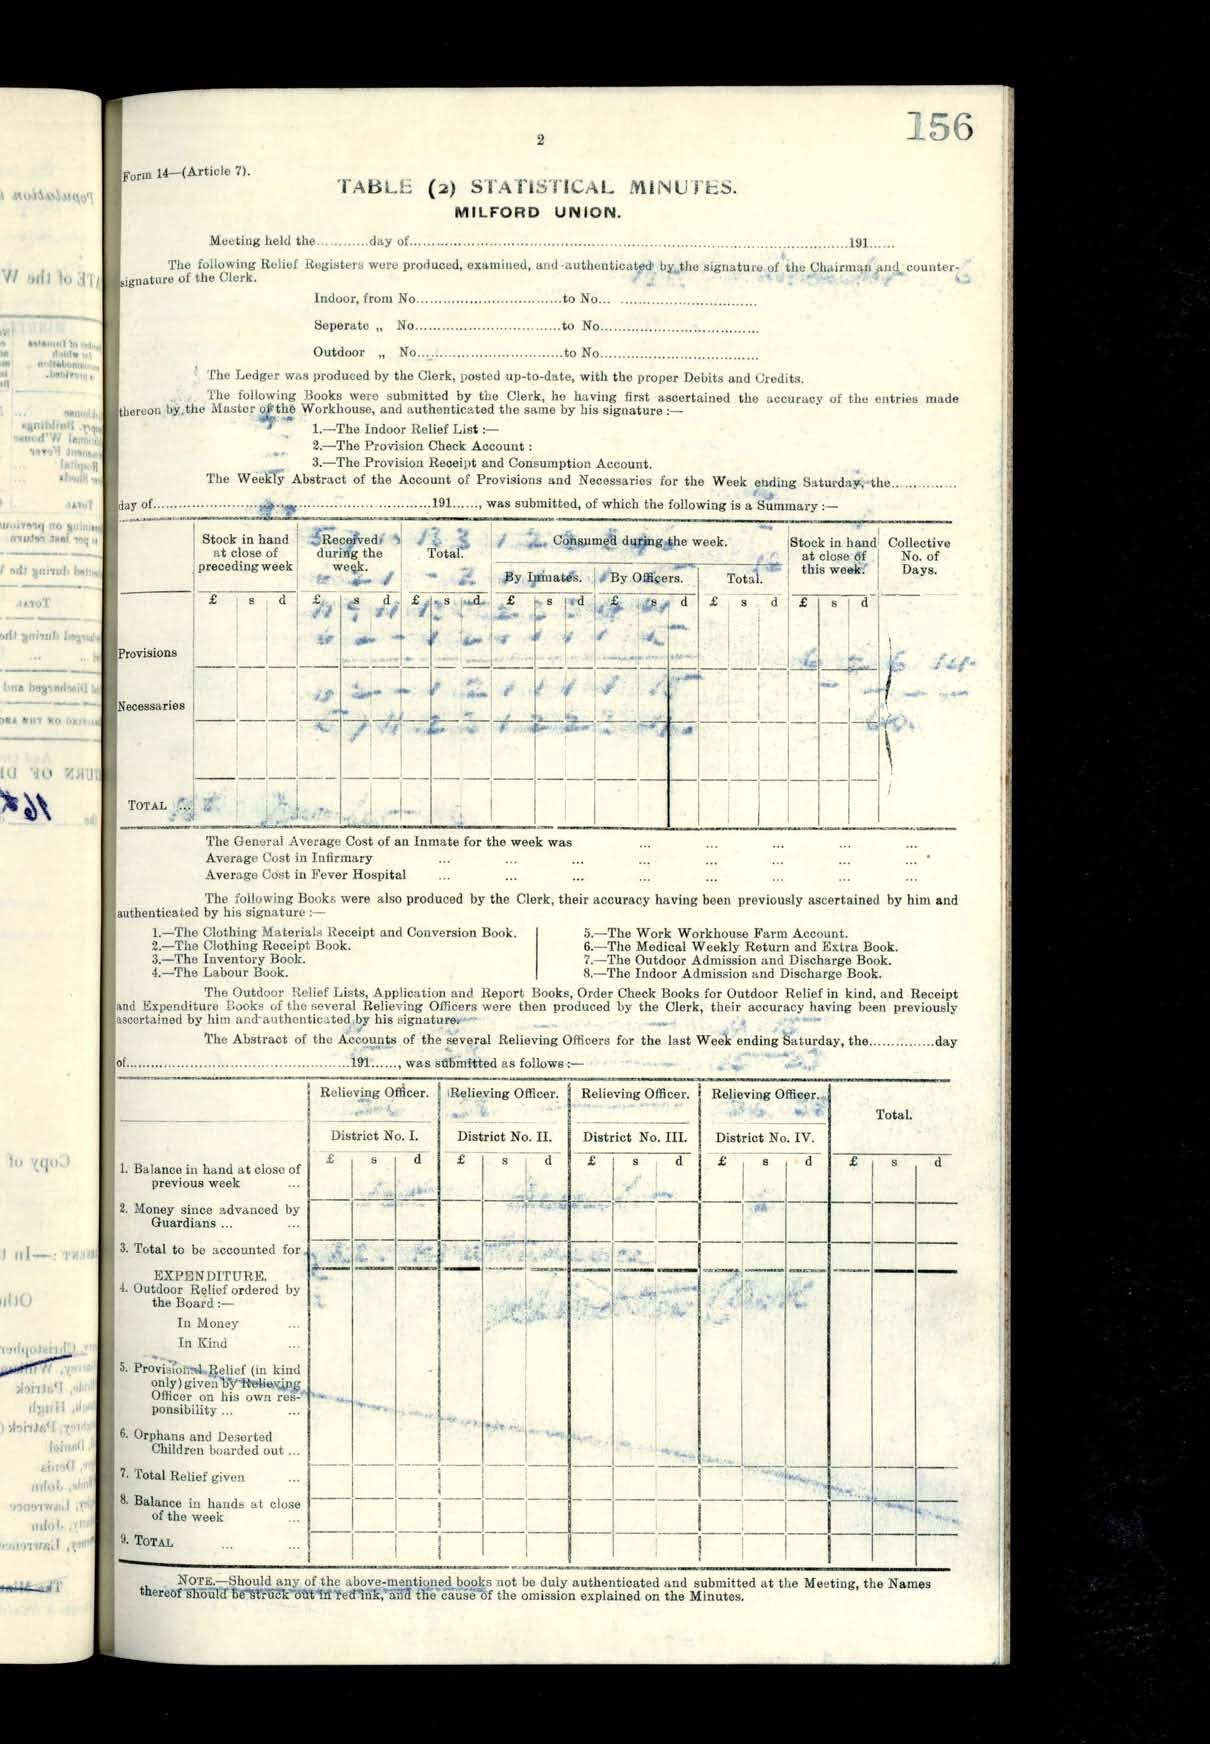 156
2
Form 14—(Article 7).
TABLE (2) STATISTICAL MINUTES.
MILFORD UNION.
Meeting held the............day of............191......
The following Relief Registers were produced, examined, and authenticated by the signature of the Chairman and counter-
signature of the Clerk.
Indoor, from No............to No............
Seperate „ No............to No............
Outdoor „ No............to No............
The Ledger was produced by the Clerk, posted up-to-date, with the proper Debits and Credits.
The following Books were submitted by the Clerk, he having first ascertained the accuracy of the entries made
thereon by the Master of the Workhouse, and authenticated the same by his signature :—
1.—The Indoor Relief List :—
2.—The Provision Check Account :
3.—The Provision Receipt and Consumption Account.
The Weekly Abstract of the Account of Provisions and Necessaries for the Week ending Saturday, the............
day of............191......, was submitted, of which the following is a Summary :—
Stock in hand at close of preceding week Received during the week. Total. Consumed during the week. Stock in hand at close of this week. Collective No. of Days.
By Inmates. By Officers. Total.
£ s d £ s d £ s d £ s d £ s d £ s d £ s d
Provisions
Necessaries
TOTAL ...
The General Average Cost of an Inmate for the week was ... ... ... ... ...
Average Cost in Infirmary ... ... ... ... ... ... ... ...
Average Cost in Fever Hospital ... ... ... ... ... ... ... ...
The following Books were also produced by the Clerk, their accuracy having been previously ascertained by him and
authenticated by his signature :—
1.—The Clothing Materials Receipt and Conversion Book.
2.—The Clothing Receipt Book.
3.—The Inventory Book.
4.—The Labour Book.
5.—The Work Workhouse Farm Account.
6.—The Medical Weekly Return and Extra Book.
7.—The Outdoor Admission and Discharge Book.
8.—The Indoor Admission and Discharge Book.
The Outdoor Relief Lists, Application and Report Books, Order Check Books for Outdoor Relief in kind, and Receipt
and Expenditure Books of the several Relieving Officers were then produced by the Clerk, their accuracy having been previously
ascertained by him and authenticated by his signature.
The Abstract of the Accounts of the several Relieving Officers for the last Week ending Saturday, the............day
of............191......, was submitted as follows :—
Relieving Officer. Relieving Officer. Relieving Officer. Relieving Officer. Total.
District No. I. District No. II. District No. III. District No. IV.
£ s d £ s d £ s d £ s d £ s d
1. Balance in hand at close of
previous week ...
2. Money since advanced by
Guardians ... ...
3. Total to be accounted for
EXPENDITURE.
4. Outdoor Relief ordered by
the Board :—
In Money ...
In Kind ...
5. Provisional Relief (in kind
only) given by Relieving
Officer on his own res-
ponsibility ... ...
6. Orphans and Deserted
Children boarded out ...
7. Total Relief given ...
8. Balance in hands at close
of the week ...
9. TOTAL ... ...
NOTE.—Should any of the above-mentioned books not be duly authenticated and submitted at the Meeting, the Names
thereof should be struck out in red ink, and the cause of the omission explained on the Minutes.